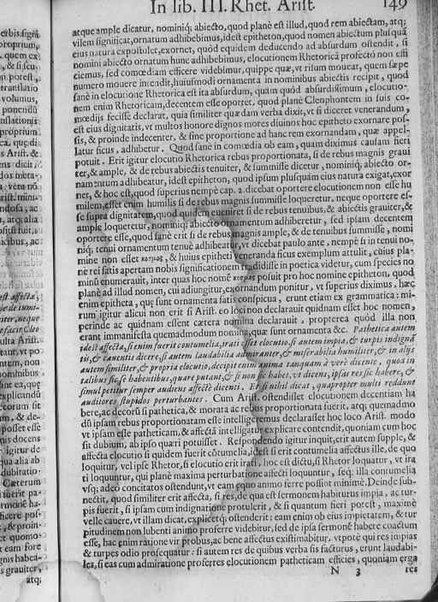 In lib. III. Rhet. Arist. 149
atque ample dicatur, nominiq; abiecto, quod planè est illud, quod rem abiectam, atq;
vilem significat, ornatum adhibebimus, idest epitheton, quod nomen abiectum plus quā
eius natura expostulet, exornet, quòd equidem deducendo ad absurdum ostendit, si
nomini abiecto ornatum hunc adhibebimus, elocutionem Rhetorica profecto non effi
ciemus, sed comœdiam efficere videbimur, quippe quæ, vt risum moueat, quem sæpe
numero mouere incendit, huiusmodi ornamenta in nominibus abiectis recipit, quod
sanè in elocutione Rhetorica est ita absurdum, quàm quod absurdissimum, elocutio-
nem enim Rhetoricam, decentem esse oportet, quod planè Cleophontem in suis co-
mœdijs fecisse dicamus, quia similiter quædam verba dixit, vt si diceret venerandum,
est eius dignitatis, vt multos honore dignos mores diuinos hoc epitheto exornare pos-
sis, & proinde indecenter, & sine proportione ad hanc rem exornandam, quæ appel-
latur ficus, adhibetur. Quod sanè in comœdia ob eam, quam diximus causam fieri
potuit. Erit igitur elocutio Rhetorica rebus proportionata, si de rebus magnis graui
ter, & ample, & de rebus abiectis tenuiter, & summisse dicetur, nominiq; abiecto or-
namentum adhibatur, idest epitheton, quod ipsum plusquam eius natura exigat, exor
net, & hoc est, quod superius nempè cap. 2. dicebat oportere elocutionem non esse hu
milem, esset enim humilis si de rebus magnis summisse loqueretur, neque oportere es-
se supra dignitatem, quod sanè eueniret si de rebus tenuibus, & abiectis grauiter, &
ample loqueretur, nominiq; abiecto ornamentum adhiberetur, sed ipsam decentem
oportere esse, quod sanè erit si de rebus magnis ample, & de tenuibus summisse, nomi
niq; tenui ornamentum tenue adhibeatur, vt dicebat paulo ante, nempè si in tenui no-
mine non esset κόσμος, & huius epitheti veneranda ficus exemplum attulit, cuius pla-
nè rei satis apertam nobis significationem reliquisse in poetica videtur, cum species no
minis enumerauit, inter quas hoc nomen κόσμος posuit pro hoc nomine epitheton, quod
planè ad illud nomen, cui adiungitur, exornandum ponitur, vt superius diximus, hæc
enim epitheta, quę sunt ornamenta satis conspicua, erunt etiam ex grammatica: mi-
rum igitur alicui non erit si Arist. eo loci non declarauit quidnam esset hoc nomen,
perinde ac quidnam essent cætera nomina declarauit, properea quòd illa non
erant immanifesta quemadmodum nomina, quæ sunt ornamenta &c. Pathetica autem
idest affecta, si enim fuerit contumelia, irati esset elocutio, si autem impia, & turpis indigna
tis, & cauentis dicere, si autem laudabilia admirantèr, & miserabilia humiliter, & in alijs
autem similiter, & propria elocutio, decipit enim anima tamquam à verè dicente, quod in
talibus sic se habentibus, quare putant, & si non sic habet, vt dicens, ipsas res sic habere,
simul petitur semper audiens affectè dicenti. Et si nihil dicat, quapropter multi reddunt
auditores stupidos perturbantes. Cum Arist. ostendisset elocutionem decentiam ha
bere, ac decorū si pathetica, & morata ac rebus proportionata fuerit, atq; quemnad
modū ipsam rebus proportionatam esse intelligemus declarasset hinc loco Aristo. modo
vt ipsam esse patheticam, & affectā intelligat explicare contendit, quoniam cum hoc
sit dubium, ab ipso quæri potuisset. Respondendo igitur inquit, erit autem supple, &
affecta elocutio si quidem fuerit cōtumelia, idest si erit contumelia affectus ille, de quo
loquitur, vel ipse Rhetor, si elocutio erit irati, hoc est dictū, si Rhetor loquatur, vt ira
ti loquuntur, qui planè maxima perturbatione affecti loquuntur, seq; illa contumelia
vsq; adeò concitatos ostendunt, vt eam equo animo ferre possint minimè. Deinde sub-
nectit, quod similiter erit affecta, si res, de qua est sermonem habiturus impia, ac tur
pis fuerit, si ipsam cum indignatione protulerit, & si quantum fieri poterit, maximè
velle cauere, vt illam dicat, explicetq; ostenderit: eam enim ob eius impietatem, & tur
pitudinem non lubenti animo proferre videbitur, sed de ipsa sermonē habere coactum
esse, hac enim ratione vir probus, ac bene affectus existimabitur. vtpotè qui res impias,
& turpes odio prosequatur: si autem res de quibus verba sis facturus, erunt laudabi-
les, si eas cum admiratione proferes elocutionem patheticam efficies, quoniam erga
N 3 res